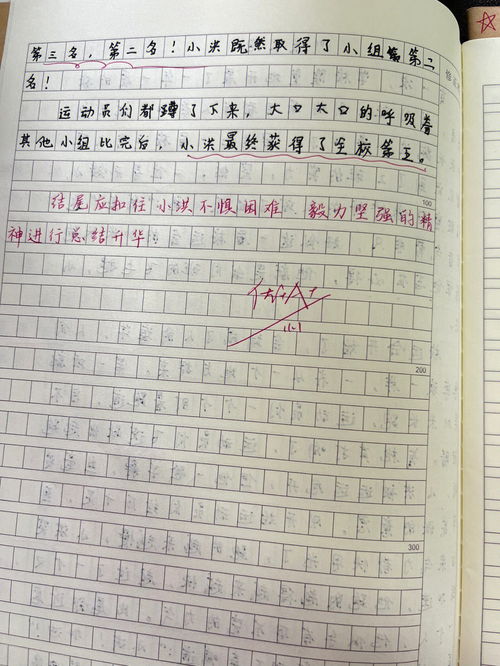 第三名，第二名！小洪既然取得了小组第二
名！
运动员们都蹲了下来，大口大口的呼吸着
其他小组比完后，小洪最终获得了全校第五。
100
结尾应扣住小洪不惧困难 毅力坚强的精
神进行总结升华
优A+
200
300